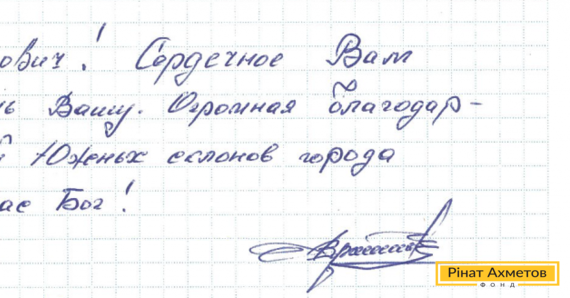 ович! Сердечное Вам
ь Вашу. Огромная благодар-
й Южных склонов города
ас Бог!
Рінат Ахметов
ФОНД